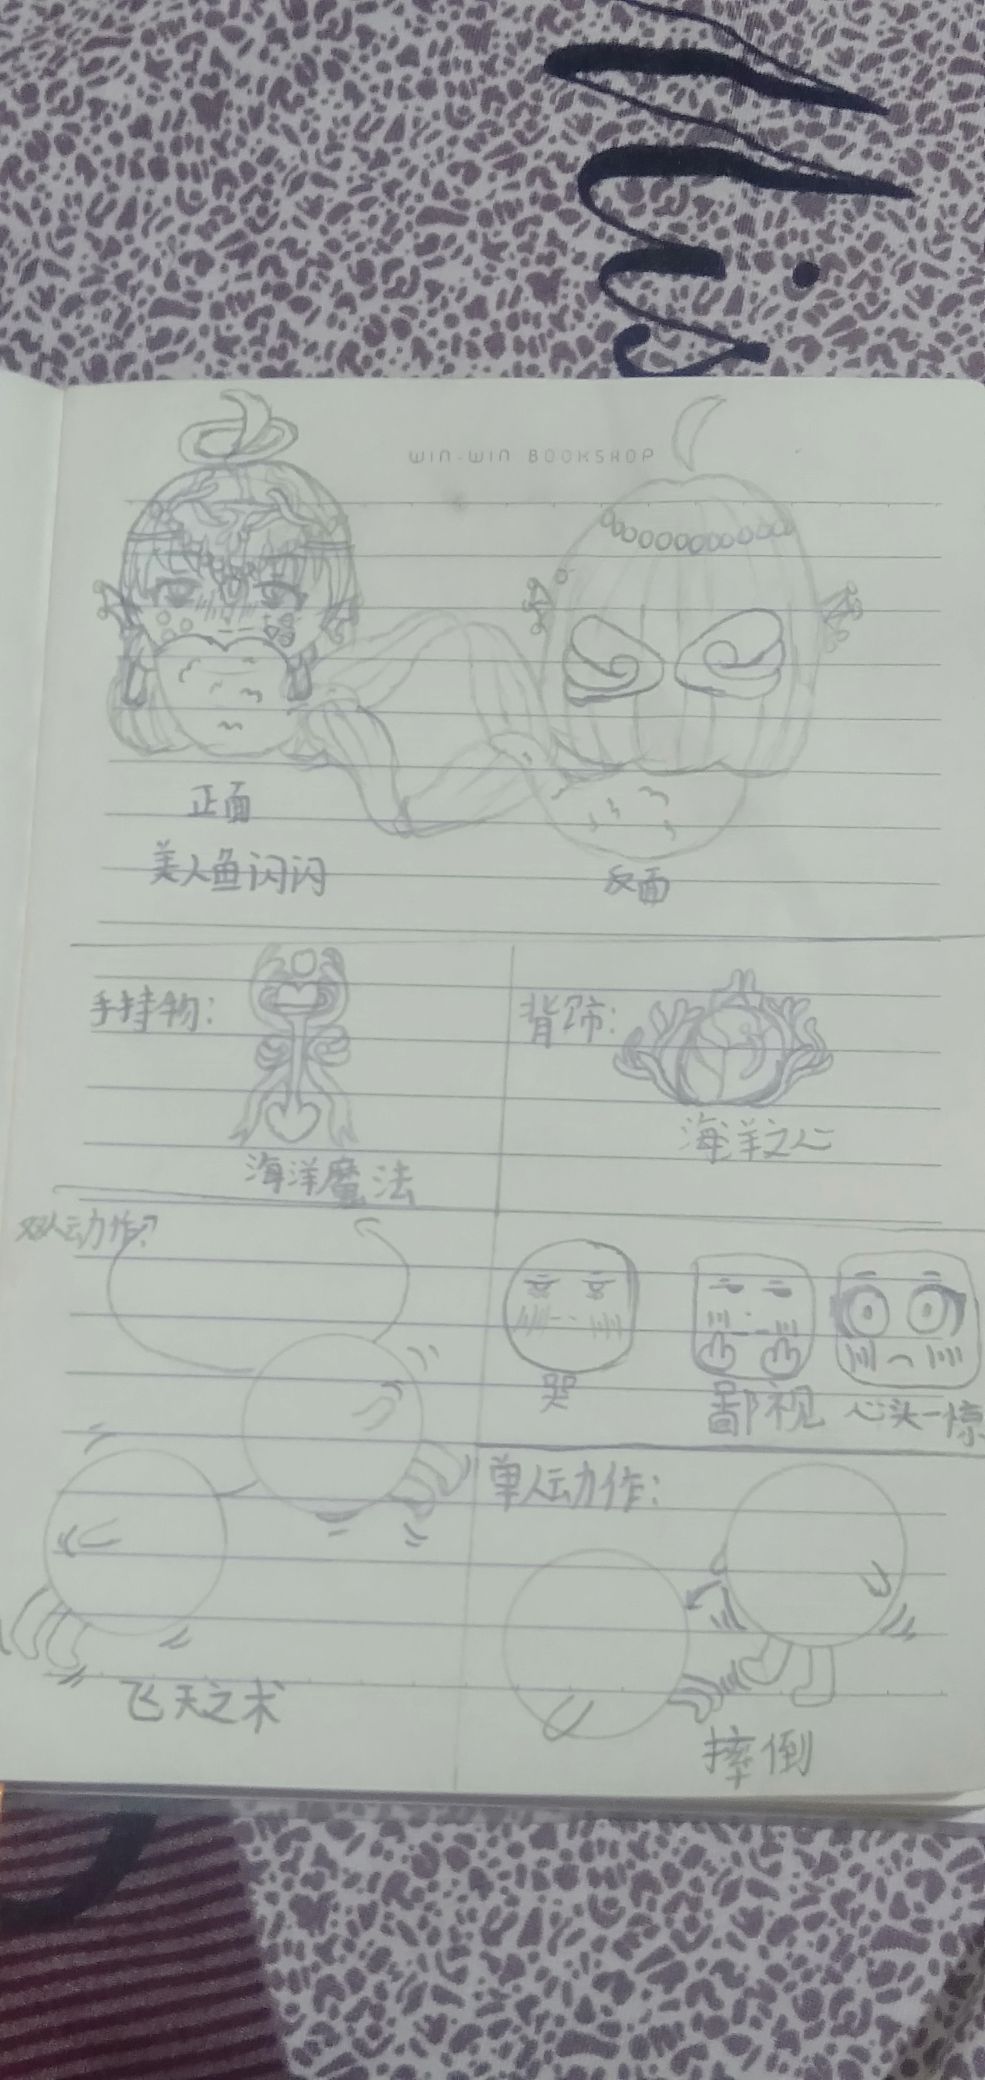 WIN-WIN BOOKSHOP
正面
美人鱼闪闪
反面
手持物：
海洋魔法
背饰：
海洋之心
双人动作：
飞天之术
哭
鄙视
心头一惊
单人动作：
摔倒